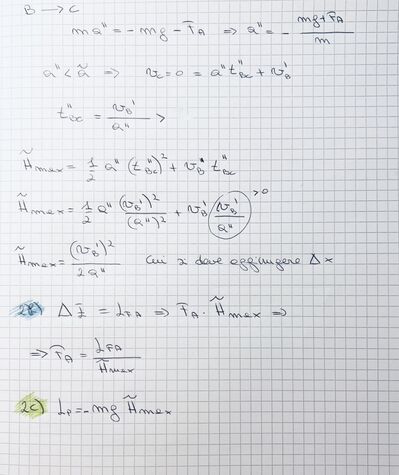 B → C
m a'' = - mg - F_A ⇒ a'' = - (mg + F_A)/m
a'' < ã ⇒ v_C = 0 = a'' t''_BC + v_B'
t''_BC = v_B'/a'' >
H̃max = 1/2 a'' (t''_BC)² + v_B' t''_BC
H̃max = 1/2 a'' (v_B')²/(a'')² + v_B' (v_B'/a'') > 0
H̃max = (v_B')²/2a'' cui si deve aggiungere Δx
2B) ΔE = L_FA ⇒ F_A · H̃max ⇒
⇒ F_A = L_FA/H̃max
2C) L_P = - mg H̃max